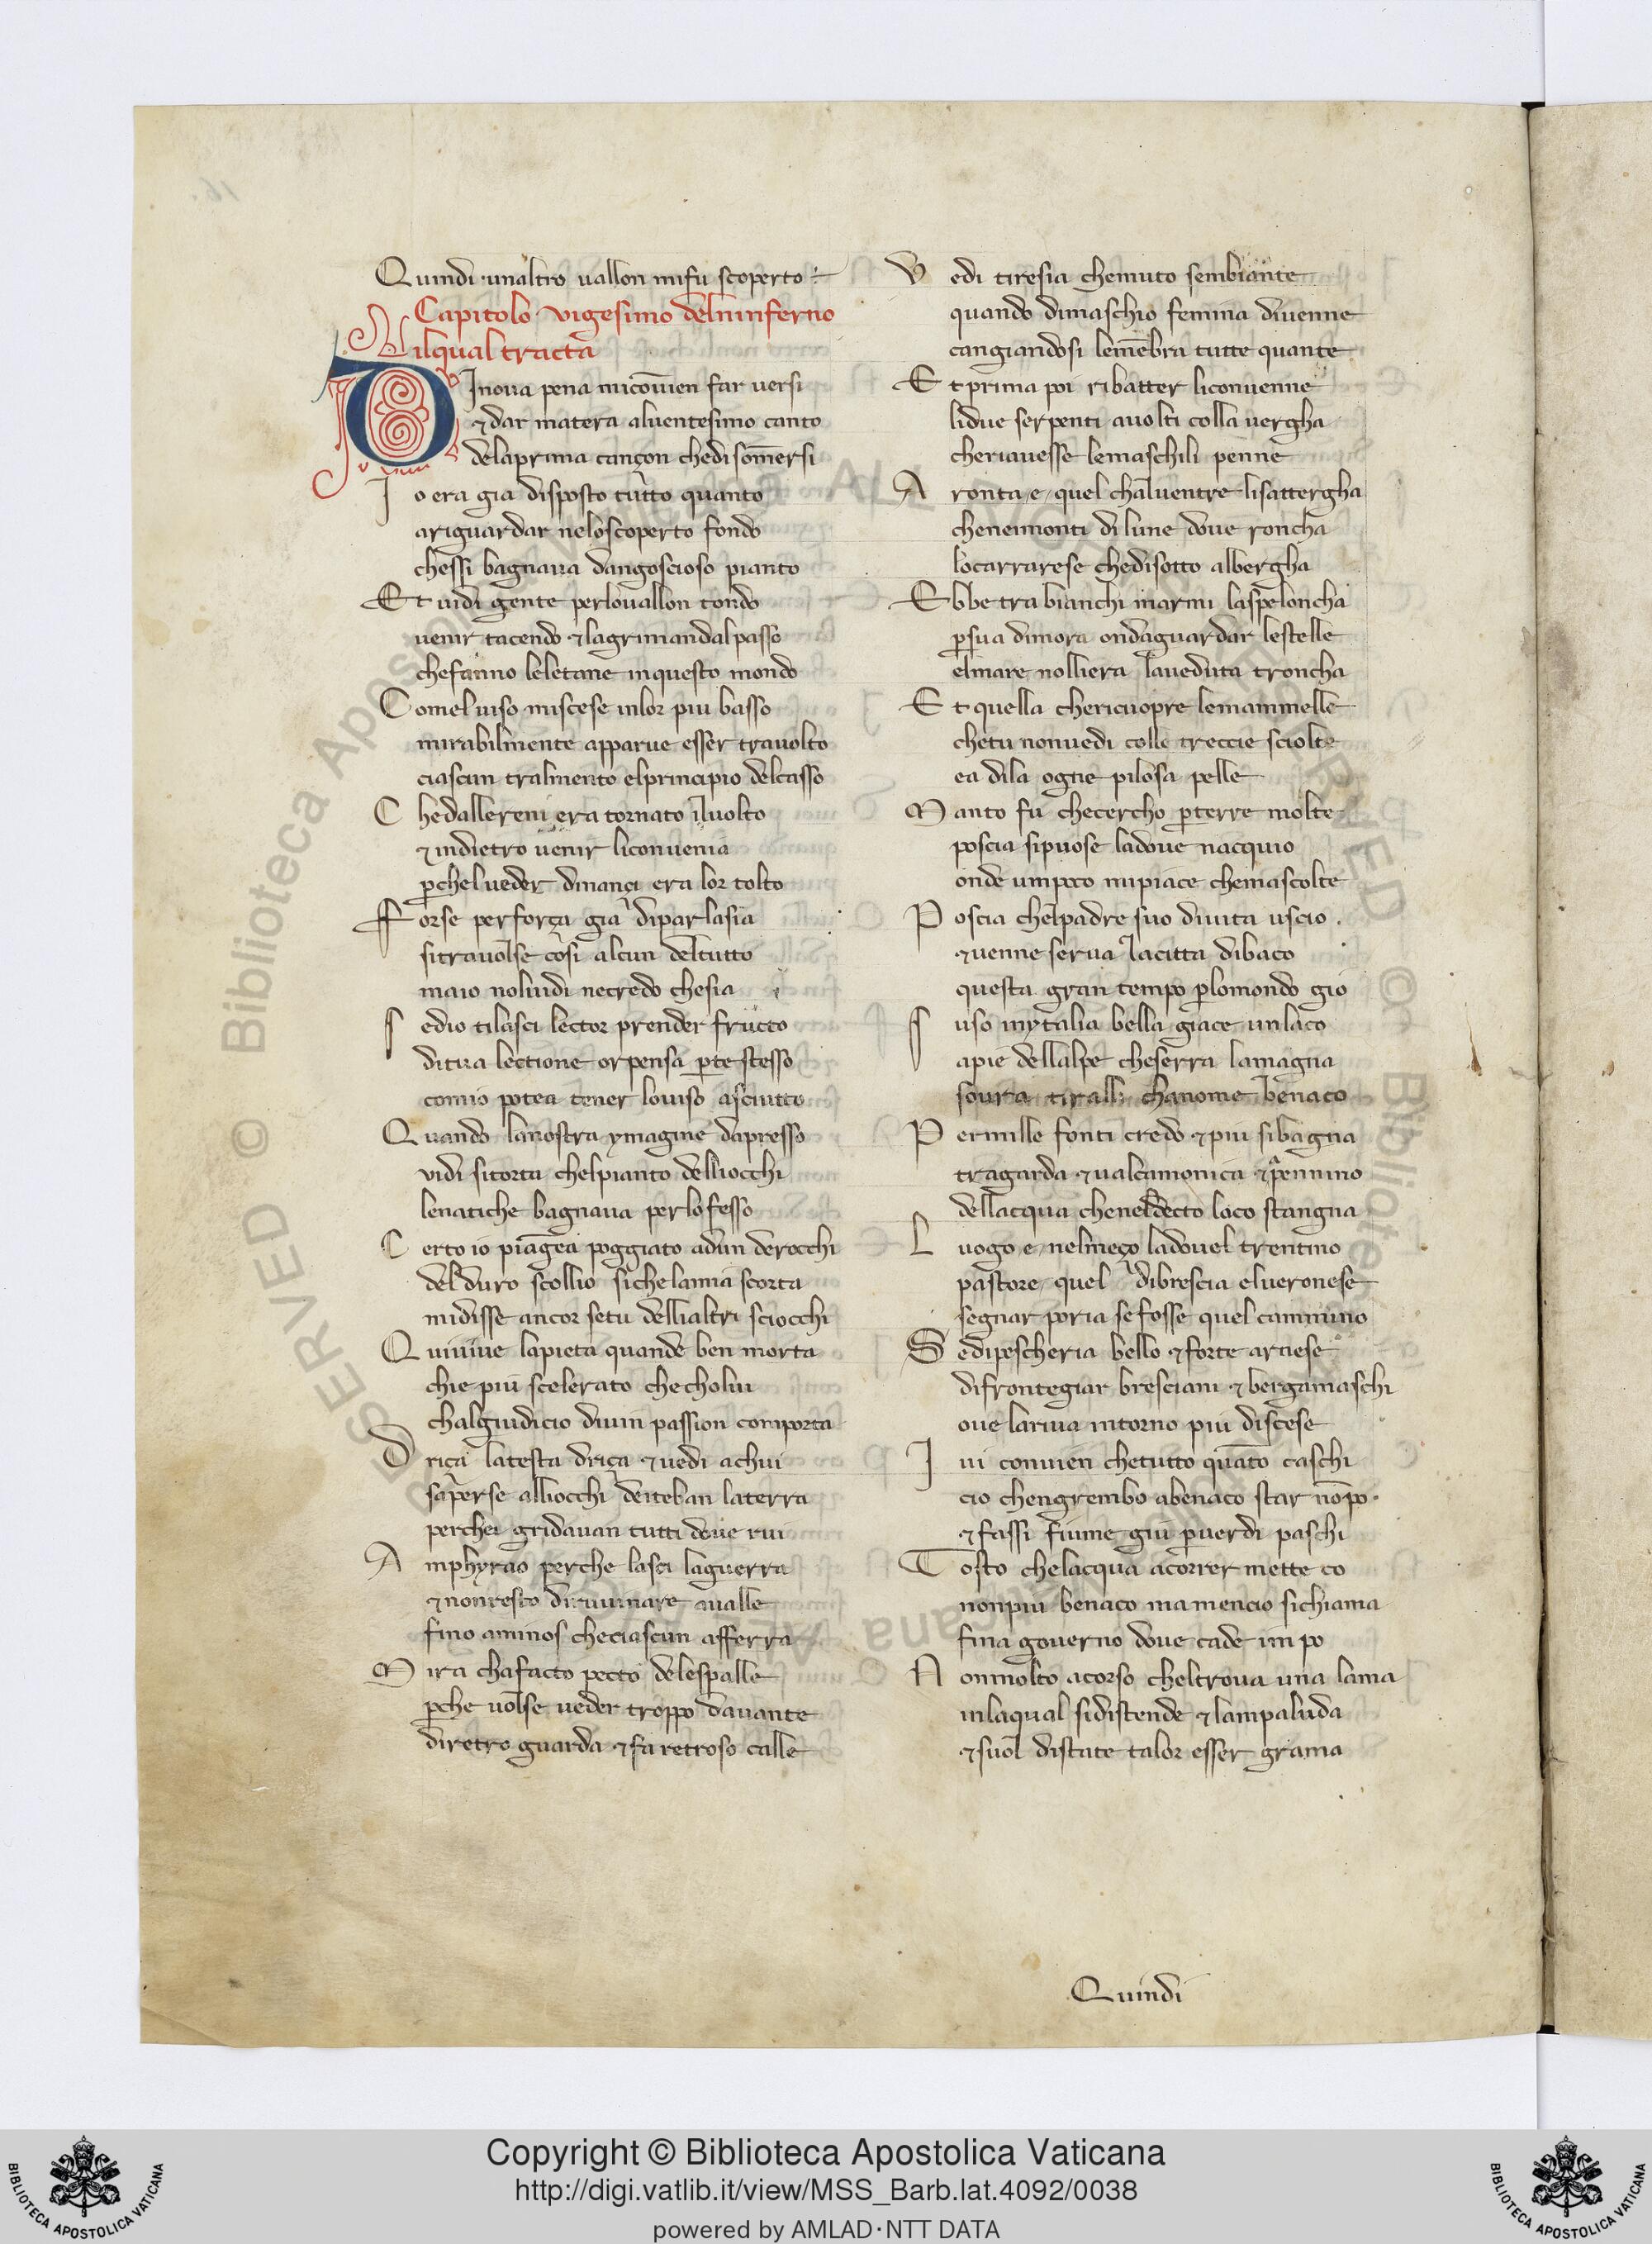 Quindi unaltro uallon mifu scoperto
Capitolo vigesimo deloninferno
ilqual tracta
DInoua pena miconuien far uersi
⁊dar matera aluentesimo canto
delaprima cançon chedi somersi
Io era gia disposto tutto quanto
ariguardar neloscoperto fondo
chessi bagnaua dangoscioso pianto
Et uidi gente perlouallon tondo
uenir tacendo ⁊lagrimandalpasso
chefanno leletane inquesto mondo
Comeluiso miscese inlor piu basso
mirabilmente apparue esser trauolto
ciascun tralmento elprincipio delcasso
Chedallereni era tornato iluolto
⁊indietro uenir liconuenia
perchel ueder dinançi era lor tolto
Fforse perforça gia diparlasia
sitrauolse cosi alcun deltutto
maio noluidi necredo chesia
Sedio tilasci lector prender fructo
ditua lectione orpensa perte stesso
comio potea tener louiso asciutto
Quando lanostra ymagine dapresso
vidi sitorta chelpianto delliocchi
lenatiche bagnaua perlofesso
Certo io piagea poggiato adun derocchi
del duro scollio siche lamia scorta
midisse ancor setu dellialtri sciocchi
Quiuiue lapieta quande ben morta
chie piu scelerato checholui
chalgiudicio diuin passion comporta
Driça latesta driça ⁊uedi achui
saperse alliocchi deiteban laterra
perchei gridauan tutti doue rui
Amphyrao perche lasci laguerra
⁊nonresto diruuinare aualle
fino aminos checiascun afferra
Mira chafacto pecto delespalle
perche uolse ueder troppo dauante
diretro guarda ⁊fa retroso calle
Vedi tiresia chemuto sembiante
quando dimaschio femina diuenne
cangiandosi lemembra tutte quante
Et prima poi ribatter liconuenne
lidue serpenti auolti colla uergha
cheriauesse lemaschili penne
Aronta e quel chaluentre lisattergha
cheneimonti di lune doue roncha
locarrarese chedisotto albergha
Ebbe tra bianchi marmi laspeloncha
persua dimora ondaguardar lestelle
elmare nolliera laueduta troncha
Et quella chericuopre lemammelle
chetu nonuedi colle treccie sciolte
ea dila ogne pilosa pelle
Manto fu checercho perterre molte
poscia sipuose ladoue nacquio
onde umpoco mipiace chemascolte
Poscia chelpadre suo diuita uscio
⁊uenne serua lacitta dibaco
questa gran tempo perlomondo gio
Suso inytalia bella giace unlaco
apie dellalpe cheserra lamagna
soura tiralli chanome benaco
Permille fonti credo ⁊piu sibagna
tragarda ⁊ualcamonica ⁊pennino
dellacqua chenel decto laco stangna
Luogo e nelmeço ladouel trentino
pastore quel dibrescia elueronese
segnar poria sefosse quel cammino
Sedipescheria bello ⁊forte arnese
difrontegiar bresciani ⁊bergamaschi
oue lariua intorno piu discese
Iui conuien chetutto quanto caschi
cio chengrembo abenaco star nonpo
⁊fassi fiume giu peruerdi paschi
Tosto chelacqua acorrer mette co
nonpiu benaco mamencio sichiama
fina gouerno doue cade impo
Nonmolto acorso cheltroua una lama
inlaqual sidistende ⁊lampaluda
⁊suol distate talor esser grama
Quindi
Copyright © Biblioteca Apostolica Vaticana
http://digi.vatlib.it/view/MSS_Barb.lat.4092/0038
powered by AMLAD·NTT DATA
BIBLIOTECA APOSTOLICA VATICANA
BIBLIOTECA APOSTOLICA VATICANA